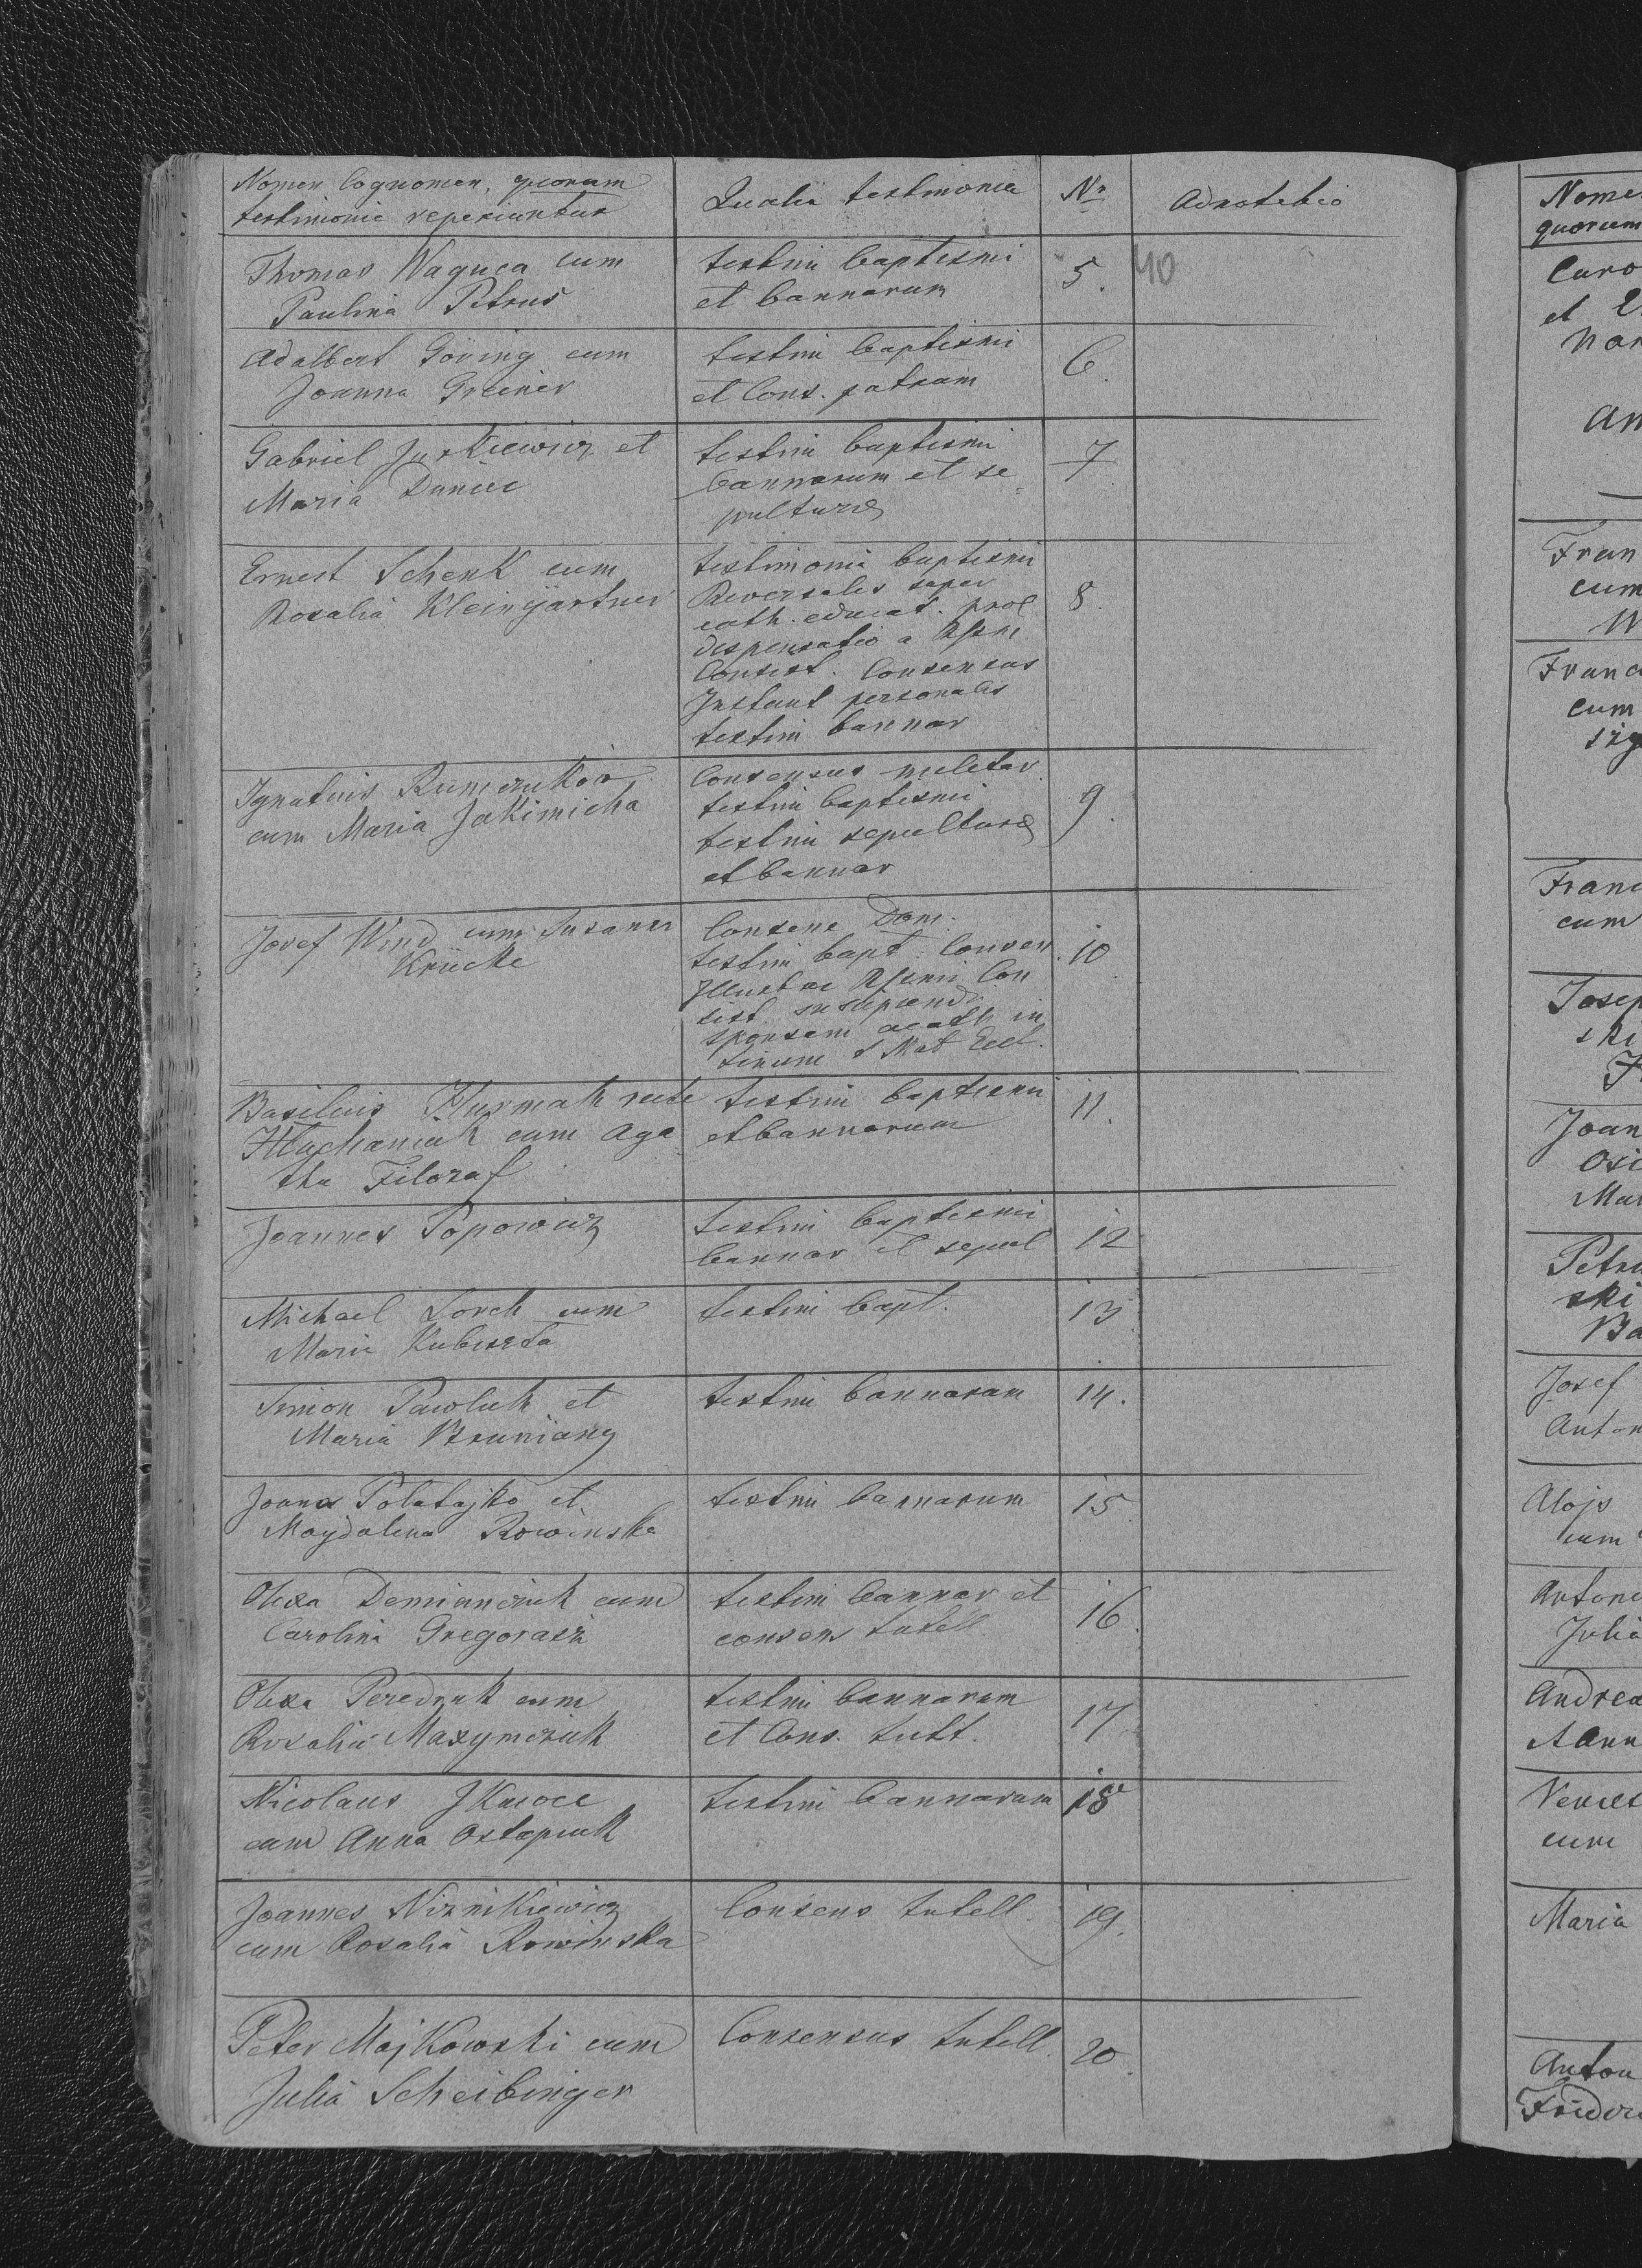 Nomen Cognomen, quorum
testimonia reperiuntur
Qualia testimonia
Nr
Adnotatio
Thomas Waguca cum
Paulina Petrus
testim baptismi
et bannorum
5.
40
Adalbert Göring cum
Joanna Greiner
testim baptismi
et Cons. patrum
6.
Gabriel Jurkiewicz et
Maria Duniec
testim baptismi
bannorum et se
pulturæ
7
Ernest Schenk cum
Rosalia Kleingärtner
testimonia baptismi
Reversales super
cath. educat. prol
dispensatio a
Consist. Consensus
Instant personales
testim bannor
8.
Ignatius Rumczuków
cum Maria Jakimicha
Consensus militar
testim baptismi
testim sepulturæ
et bannor
9.
Josef Wind cum Susanna
Krücke
Consens Dom.
testim bapt. Conven
Con
sist suscipiendi
sponsam acath in
sinum S Mat Eccl.
10
Basilius Hurmak recte
Hluchaniuk cum Aga
tha Filozof
testim baptismi
et bannorum
11.
Joannes Popowicz
testim baptismi
bannor et sepul
12
Michael Lorch cum
Maria Kubiszta
testim bapt.
13
Simon Pawluk et
Maria Bruniany
testim bannorum
14.
Joanes Polatajko et
Magdalena Rowinska
testim bannorum
15
Olexa Demianczuk cum
Carolina Gregorasz
testim bannor et
consens tutell
16.
Olexa Peredruk cum
Rosalia Maxymczuk
testim bannorum
et Cons. tutt.
17
Nicolaus
cum Anna Ostapiuk
testim bannorum
18
Joannes Niznikiewicz
cum Rosalia Rowinska
Consens tutell.
19.
Peter Majkowski cum
Julia Scheibinger
Consensus tutell.
20
Nome
quorum
Caro
et
Fran
cum
W
Franc
cum
Franc
cum
Josep
ski
Joan
Osi
Mar
Petru
ski
Ba
Josef
Anton
Alojs
cum
Antoni
Julia
Andrea
Vences
cum
Maria
Anton
Frideri